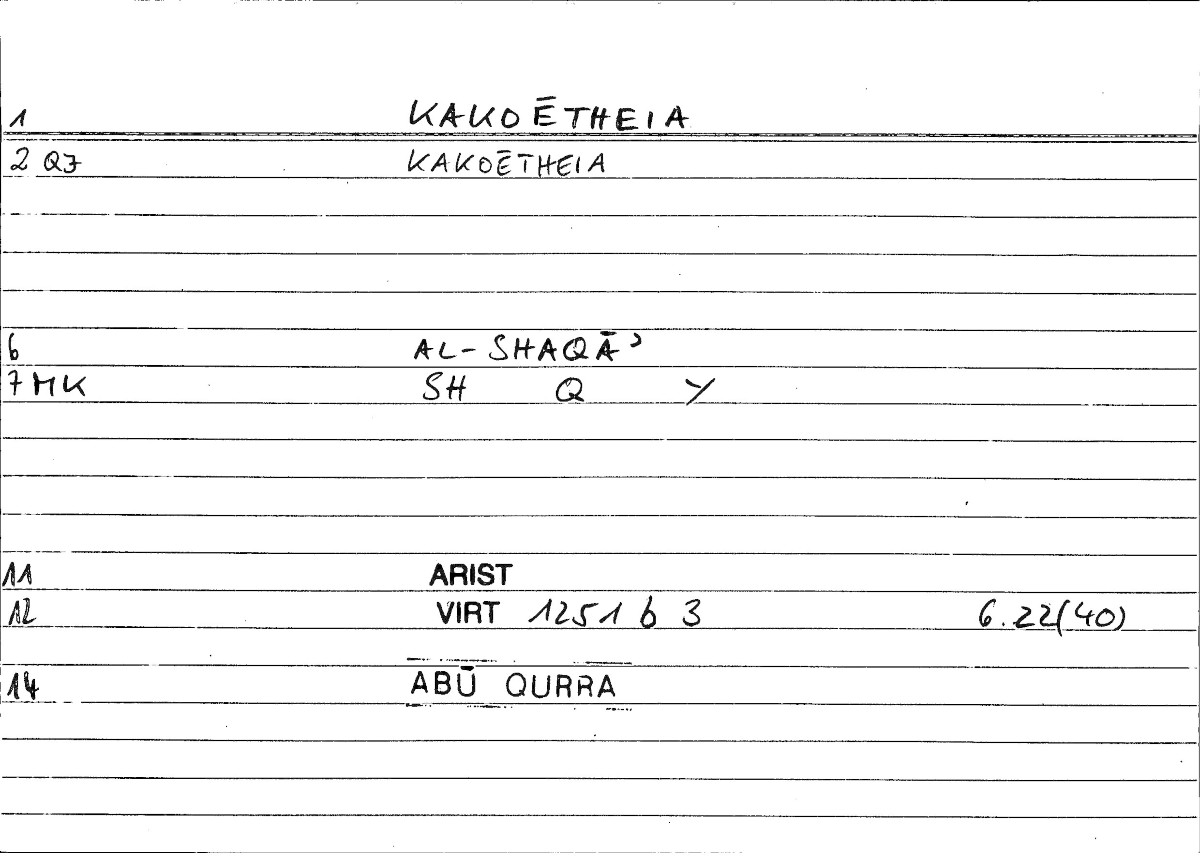 1 KAKOĒTHEIA
2 QJ KAKOĒTHEIA
6 AL-SHAQĀʾ
7 MK SH Q Y
11 ARIST
12 VIRT 1251 b 3 6.22(40)
14 ABŪ QURRA